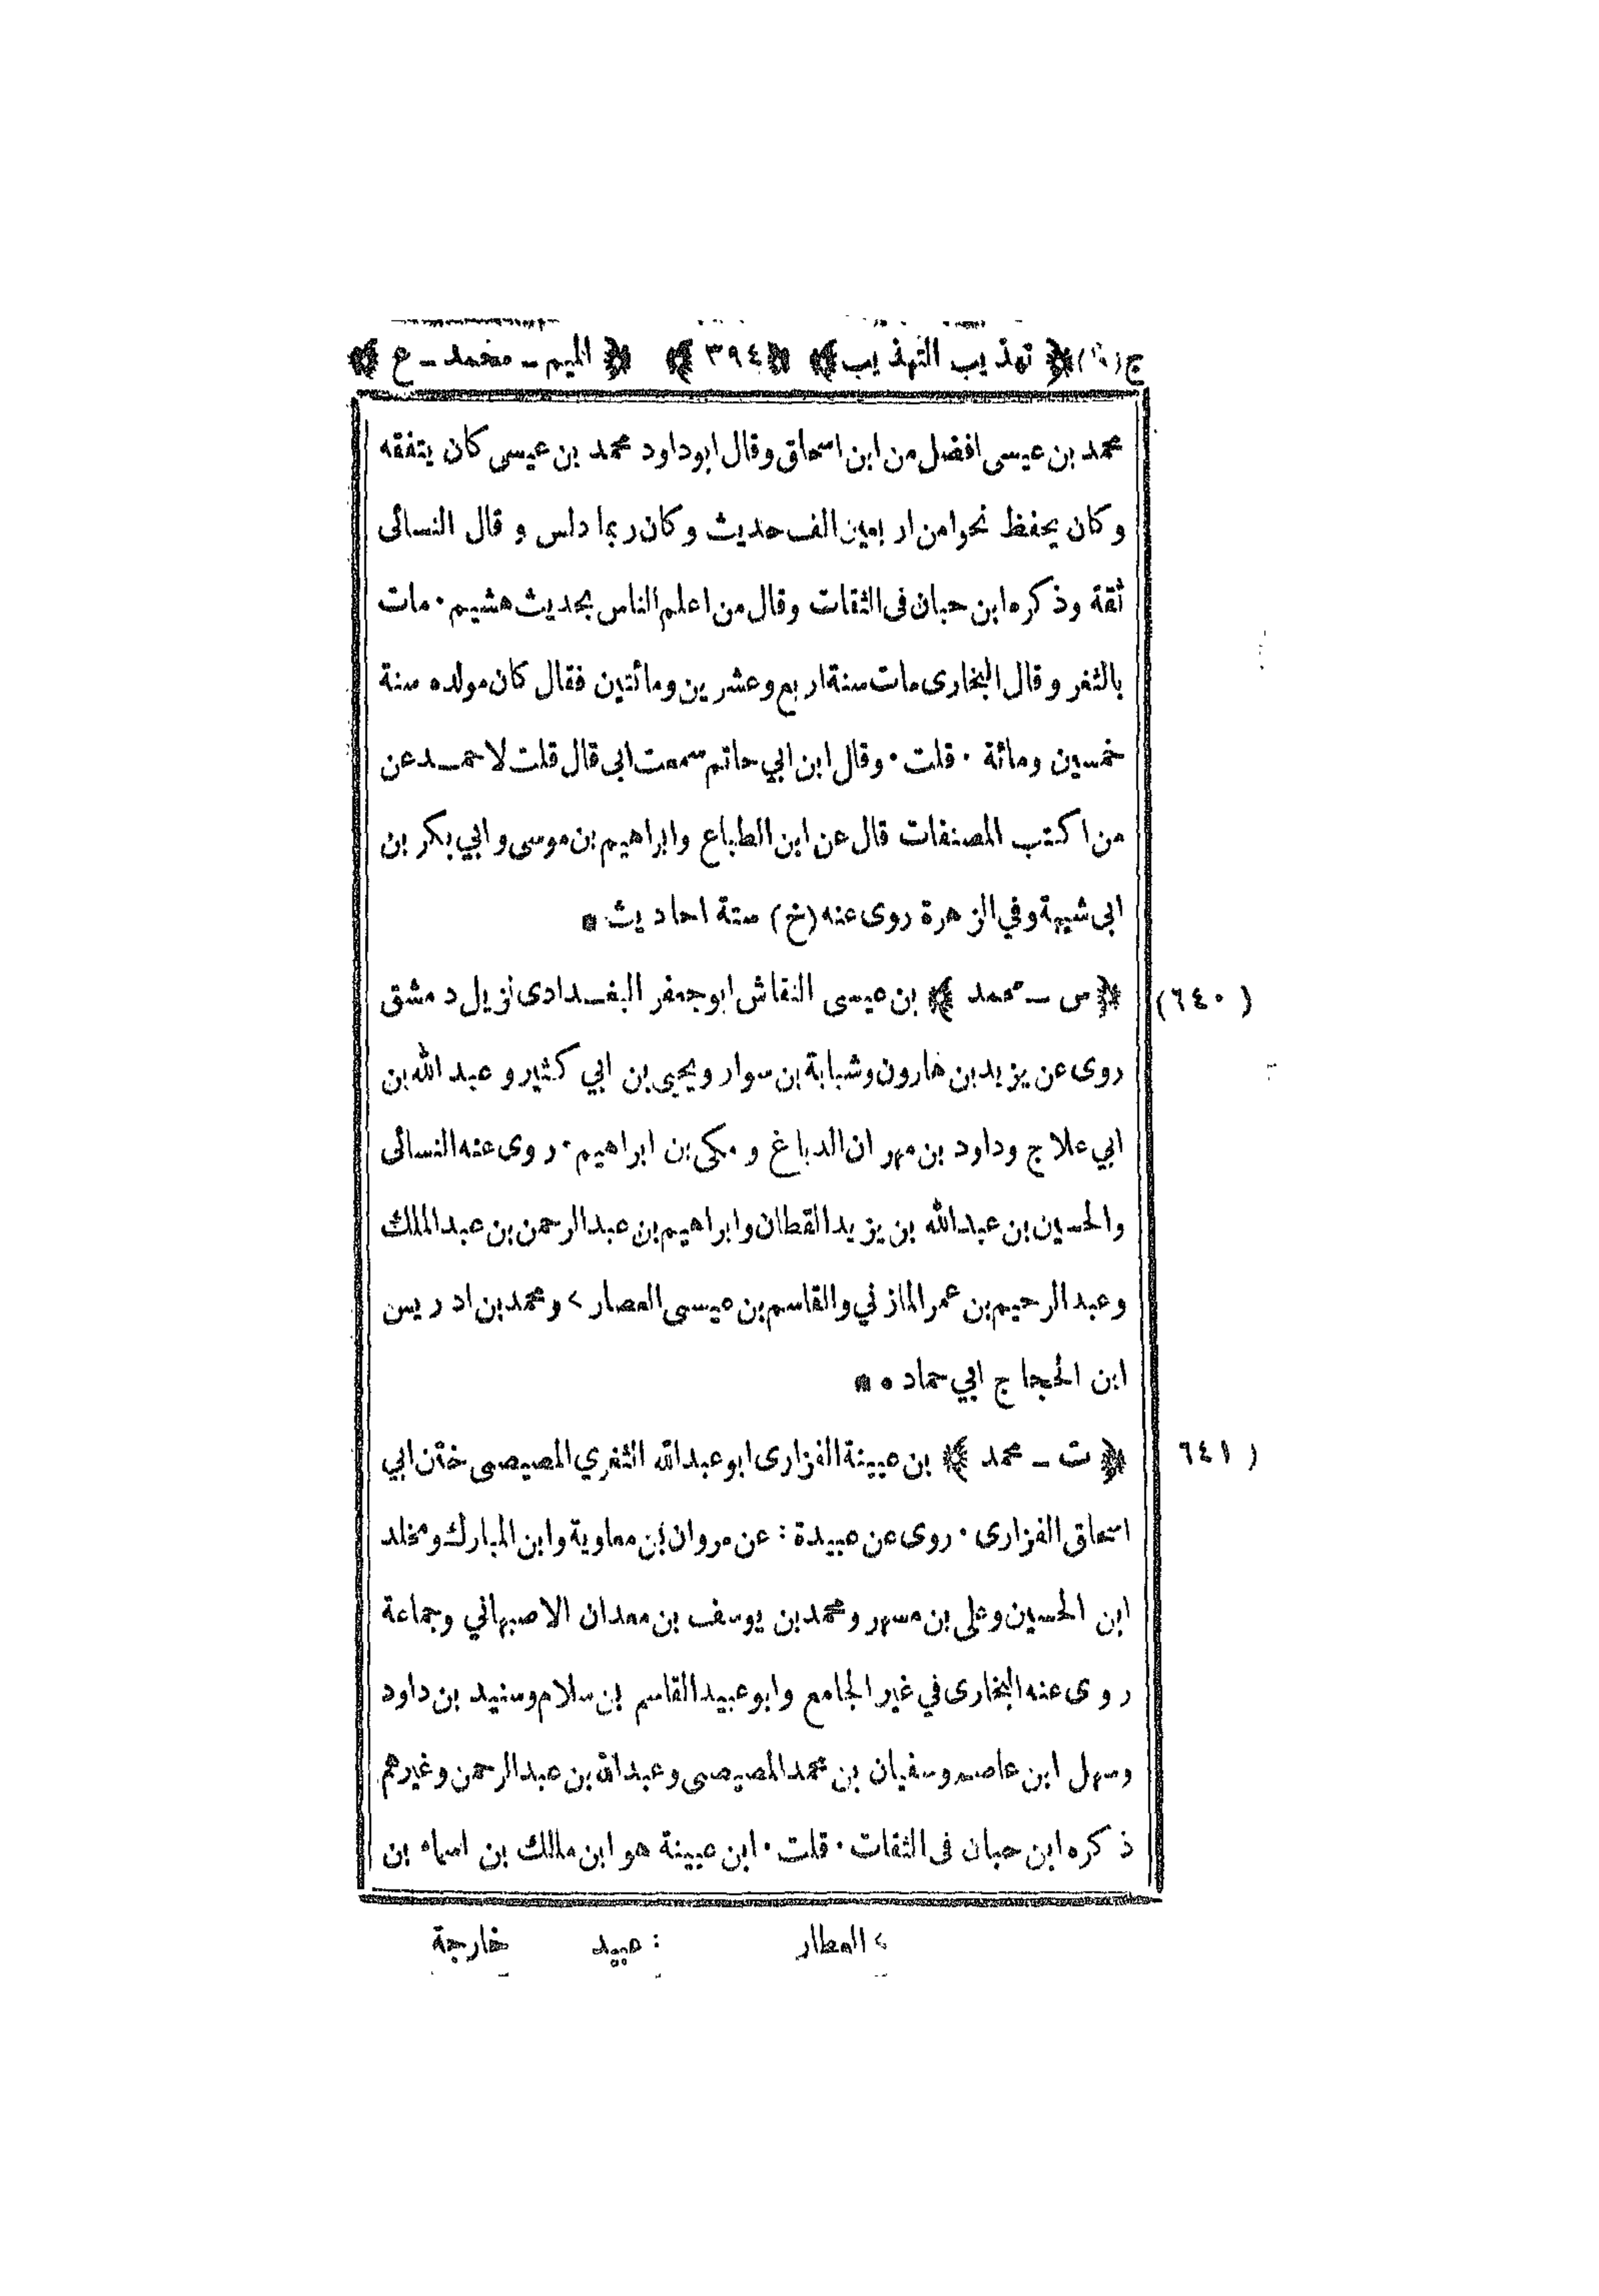 ج (٩) ﴿ تهذيب التهذيب ﴾ ﴿ ٣٩٤ ﴾ ﴿ الميم ـ محمد ـ ع ﴾
محمد بن عيسى افضل من ابن اسحاق وقال ابو داود محمد بن عيسى كان يتفقه
وكان يحفظ نحوا من اربعين الف حديث وكان ربما دلس و قال النسائى
ثقة وذكره ابن حبان فى الثقات وقال من اعلم الناس بحديث هشيم ٠ مات
بالثغر وقال البخارى مات سنة اربع وعشرين ومائتين فقال كان مولده سنة
خمسين ومائة ٠ قلت ٠ وقال ابن ابي حاتم سمعت ابى قال قلت لاحمد عن
من اكتب المصنفات قال عن ابن الطباع وابراهيم بن موسى وابي بكر بن
ابى شيبة وفي الزهرة روى عنه (خ) ستة احاديث *
(٦٤٠) ﴿ س ـ محمد ﴾ بن عيسى النقاش ابو جعفر البغدادى نزيل دمشق
روى عن يزيد بن هارون وشبابة بن سوار ويحيى بن ابي كثير و عبد الله بن
ابي علاج وداود بن مهران الدباغ و مكى بن ابراهيم ٠ روى عنه النسائى
والحسين بن عبد الله بن يزيد القطان وابراهيم بن عبد الرحمن بن عبد الملك
وعبد الرحيم بن عمر المازني والقاسم بن عيسى العصار > ومحمد بن ادريس
ابن الحجاج ابي حماد ٠ *
(٦٤١ ﴿ ت ـ محمد ﴾ بن عيينة الفزارى ابو عبد الله الثغري المصيصى ختن ابي
اسحاق الفزارى ٠ روى عن عبيدة : عن مروان بن معاوية وابن المبارك ومخلد
ابن الحسين وعلى بن مسهر ومحمد بن يوسف بن معدان الاصبهاني وجماعة
روى عنه البخارى في غير الجامع وابو عبيد القاسم بن سلام وسنيد بن داود
وسهل ابن عاصم وسفيان بن محمد المصيصى وعبد الله بن عبد الرحمن وغيرهم
ذكره ابن حبان فى الثقات ٠ قلت ٠ ابن عيينة هو ابن مالك بن اسماء بن
> العطار : عبيد خارجة